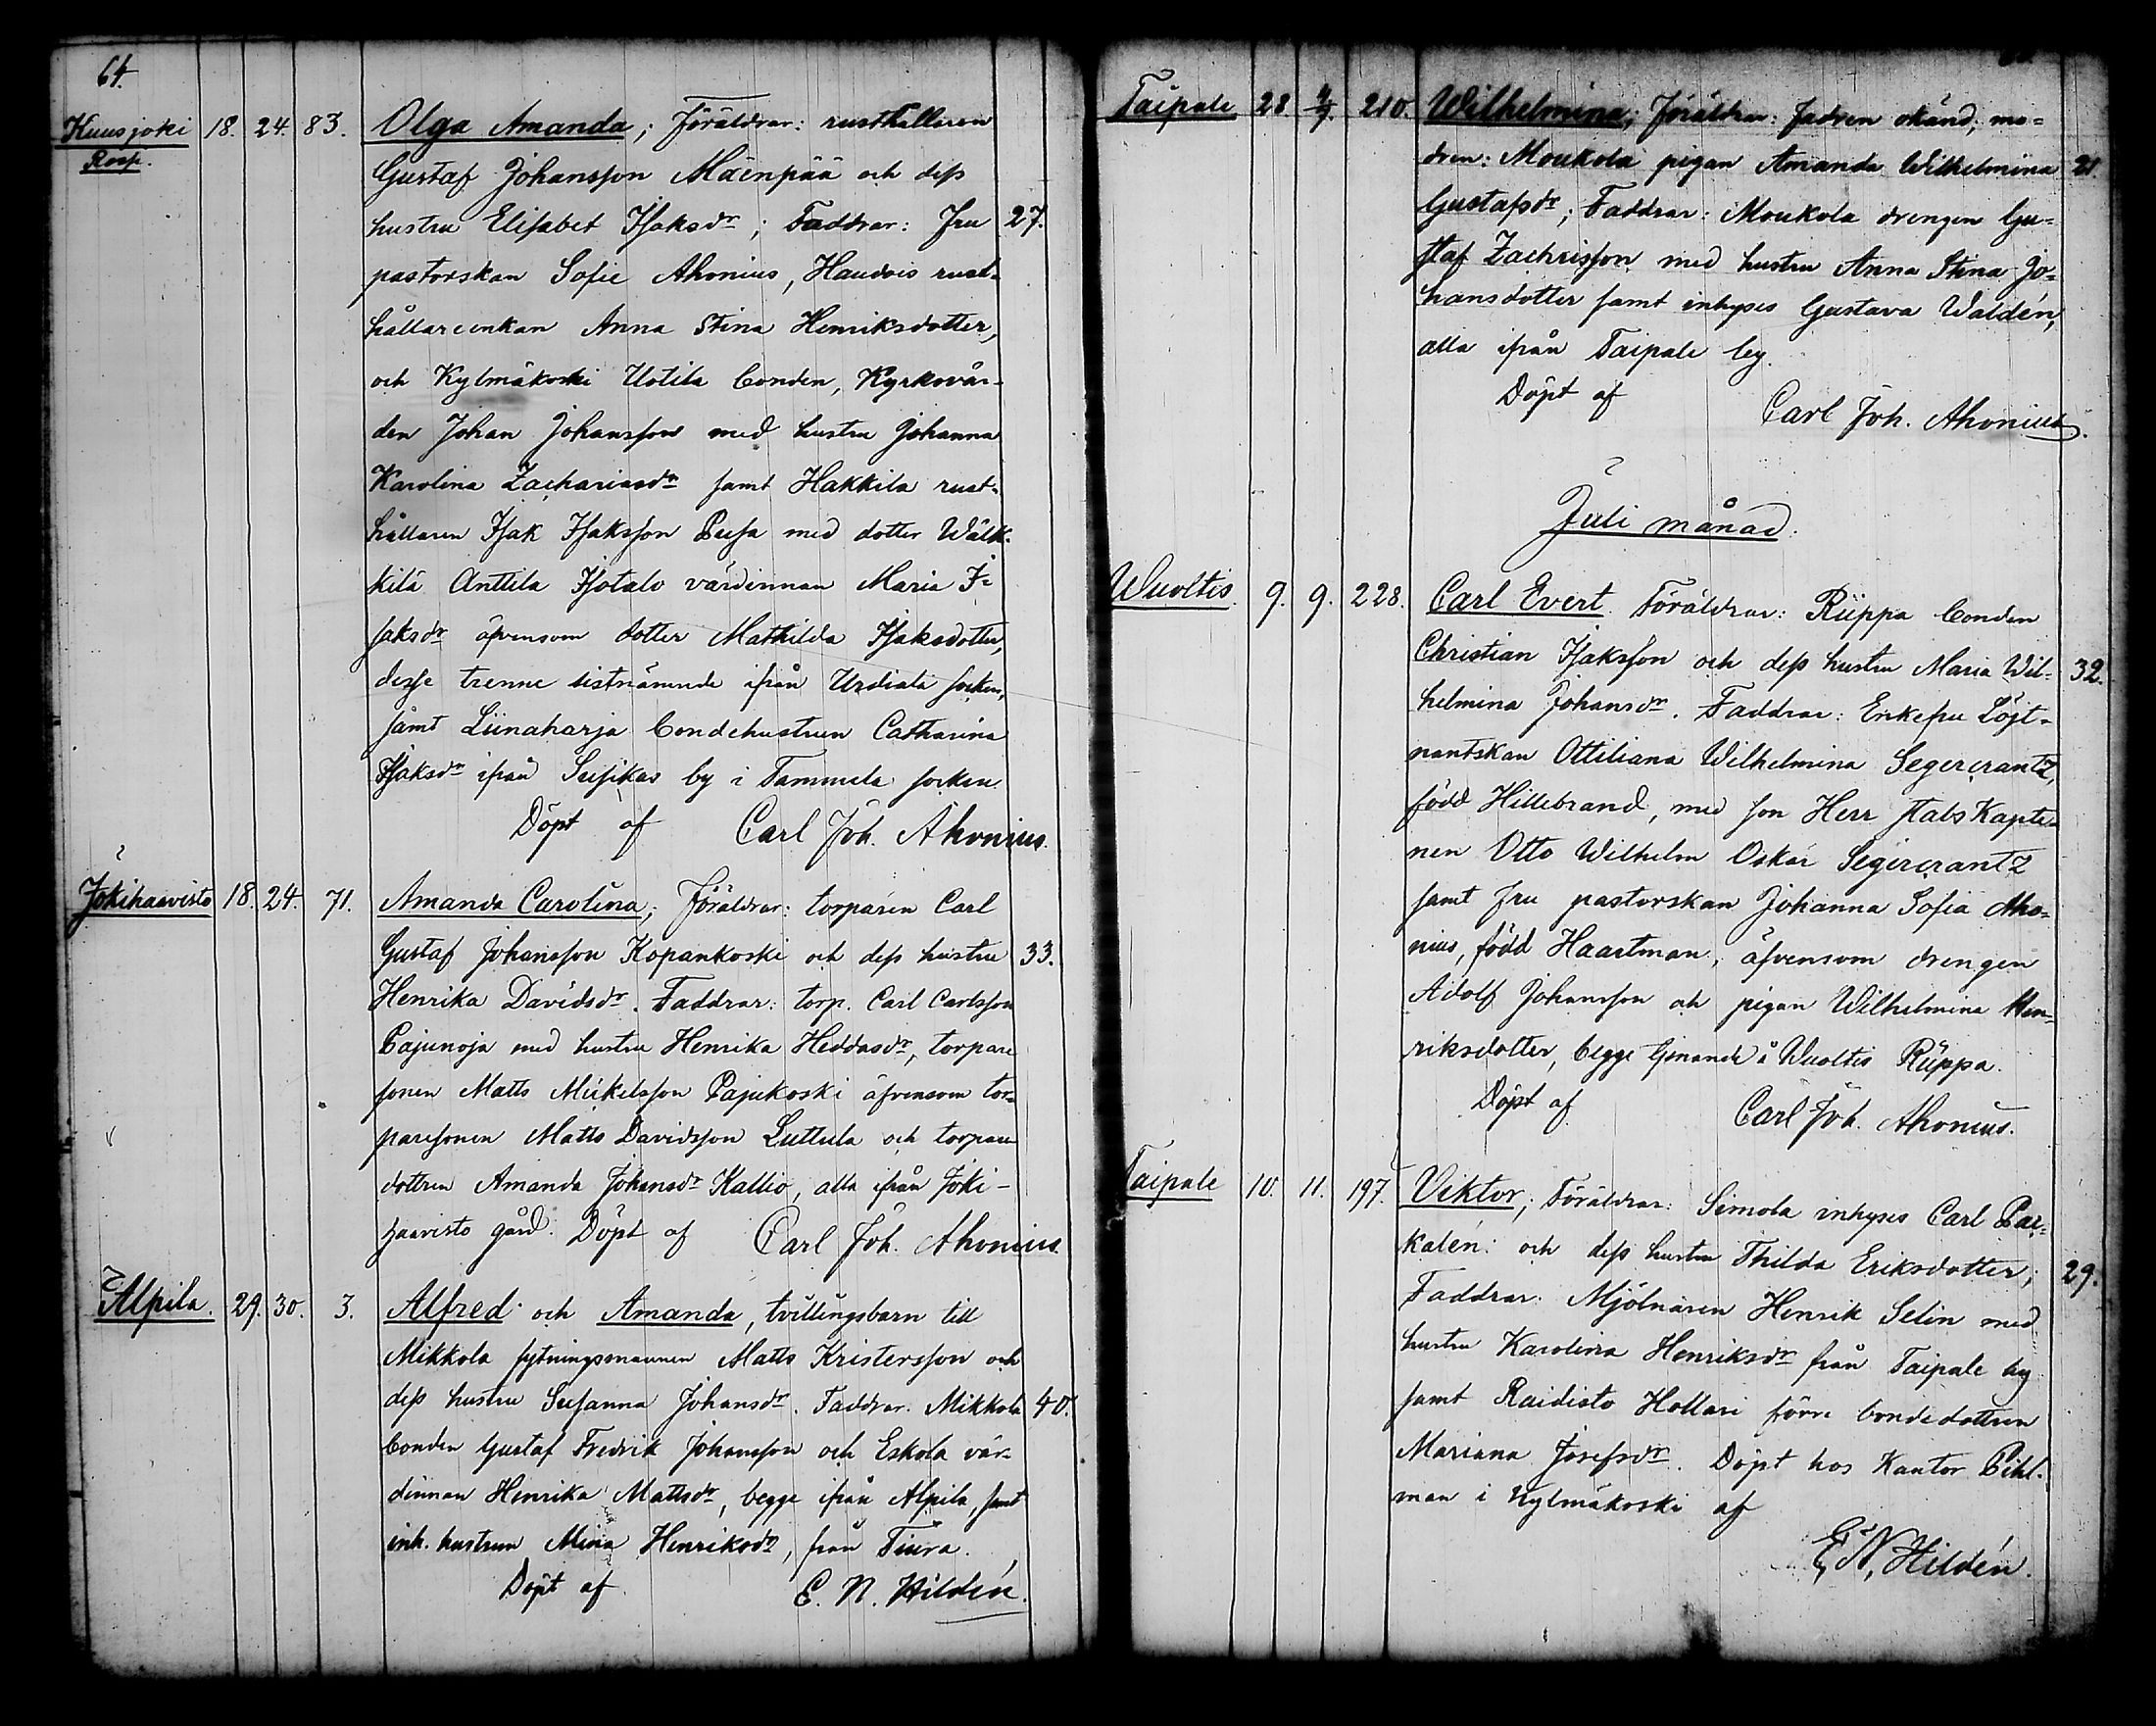 64.
Kuusjoki 18. 24. 83. Olga Amanda; Föräldrar: rusthållaren
Rosp.
Gustaf Johansson Mäenpää och dess
hustru Elisabet Isaksdr; Faddrar: Fru 27.
pastorskan Sofie Ahonius, Haudois rust-
hållareenkan Anna Stina Henriksdotter,
och Kylmäkoski Uotila bonden, Kyrkovär-
den Johan Johansson med hustru Johanna
Karolina Zachariasdr samt Hakkila rust-
hållaren Isak Isaksson Pusa med dotter Wälk-
kilä Anttila Isotalo värdinnan Maria I-
saksdr äfvensom dotter Mathilda Isaksdotter,
desse trenne sistnämnde ifrån Urdiala socken,
samt Liinaharja bondehustrun Catharina
Isaksdr ifrån Susikas by i Tammela socken.
Döpt af Carl Joh. Ahonius.
Jokihaavisto 18. 24. 71. Amanda Carolina; Föräldrar: torparen Carl
Gustaf Johansson Kopankoski och dess hustru 33.
Henrika Davidsdr. Faddrar: torp. Carl Carlsson
Pajunoja med hustru Henrika Heddasdr, torpare
sonen Matts Mickelsson Pajukoski äfvensom tor-
paresonen Matts Davidsson Luttula och torpare
dottren Amanda Johansdr Kallio, alla ifrån Joki-
haavisto gård. Döpt af Carl Joh. Ahonius.
Alpila. 29. 30. 3. Alfred och Amanda, tvillingsbarn till
Mikkola sytningsmannen Matts Kristersson och
dess hustru Susanna Johansdr. Faddrar: Mikkola 40.
bonden Gustaf Fredrik Johansson och Eskola vär-
dinnan Henrika Mattsdr, begge ifrån Alpila, samt
inh. hustrun Mina Henriksdr, från Tiura.
Döpt af E. N. Hildén.
Taipale 28 4/7. 210. Wilhelmina; Föräldrar: fadren okänd; mo-
dren: Moukola pigan Amanda Wilhelmina 21.
Gustafsdr; Faddrar: Moukola drengen Gu-
staf Zachrisson med hustru Anna Stina Jo-
hansdotter samt inhyses Gustava Waldén,
alla ifrån Taipale by.
Döpt af
Carl Joh. Ahonius.
Juli månad.
Wuoltis. 9. 9. 228. Carl Evert. Föräldrar: Riippa bonden
Christian Isaksson och dess hustru Maria Wil- 32.
helmina Johansdr. Faddrar: Enkefru Löjt-
nantskan Ottiliana Wilhelmina Segercrantz,
född Hillebrand, med son Herr stabs Kapte-
nen Otto Wilhelm Oskar Segercrantz
samt Fru pastorskan Johanna Sofia Aho-
nius, född Haartman, äfvensom drengen
Adolf Johansson och pigan Wilhelmina Hen-
riksdotter, begge tjenande å Wuoltis Riippa.
Döpt af Carl Joh. Ahonius.
Taipale 10. 11. 197. Viktor; Föräldrar: Simola inhyses Carl Par-
kalén och dess hustru Thilda Eriksdotter; 29.
Faddrar: Mjölnaren Henrik Selin med
hustru Karolina Henriksdr från Taipale by
samt Raidisto Hollari förre bondedottren
Mariana Josefsdr. Döpt hos Kantor Pihl-
man i Kylmäkoski af
E. N. Hildén.